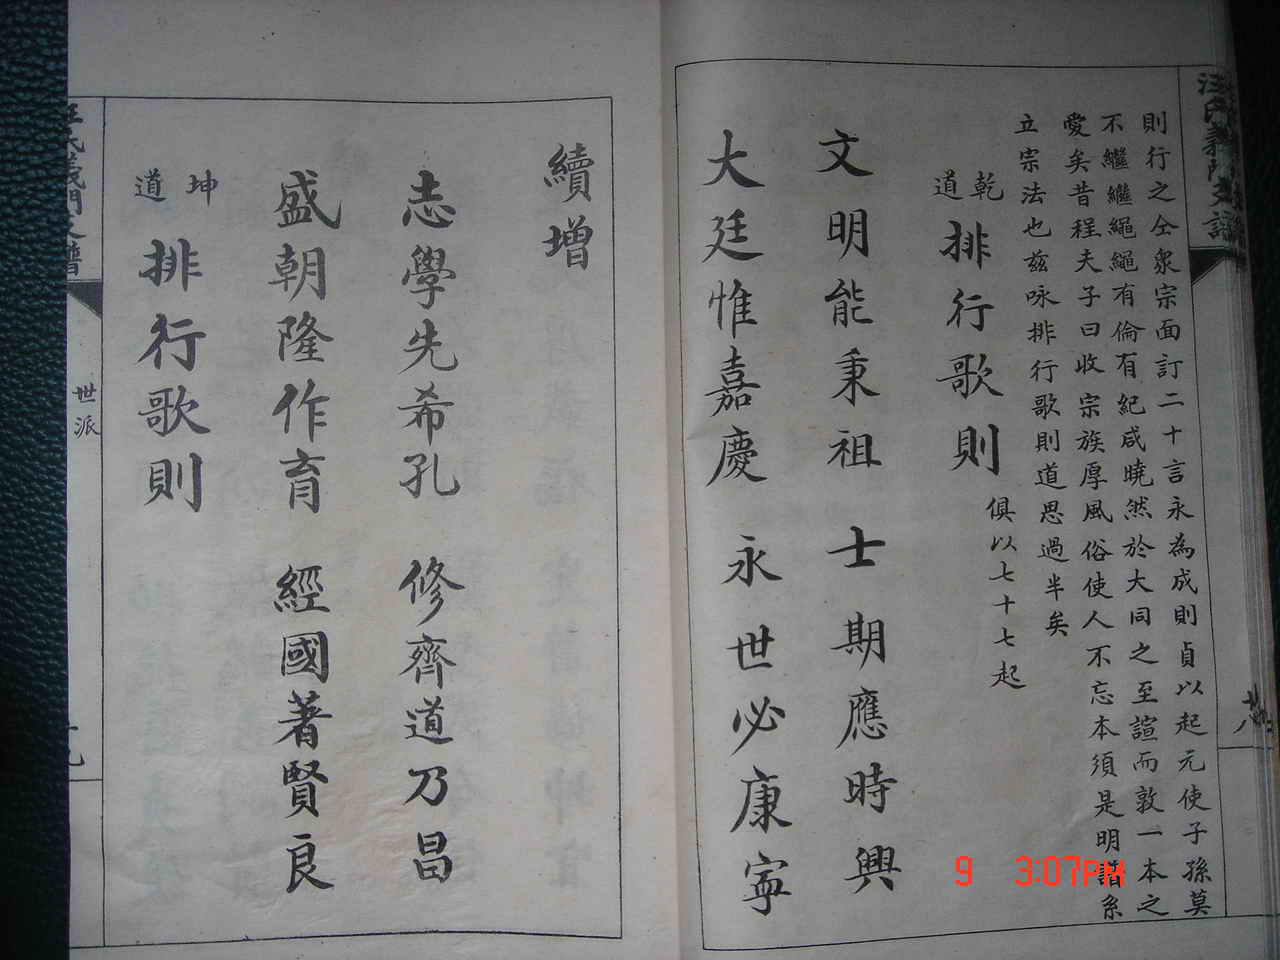 汪氏義門支譜
則行之仝眾宗面訂二十言永為成則貞以起元使子孫莫
不繼繼繩繩有倫有紀咸曉然於大同之至誼而敦一本之
愛矣昔程夫子曰收宗族厚風俗使人不忘本須是明譜系
立宗法也茲咏排行歌則道思過半矣
乾道 排行歌則 俱以七十七起
文明能秉祖 士期應時興
大廷惟嘉慶 永世必康寧
續增
志學先希孔 修齊道乃昌
盛朝隆作育 經國著賢良
坤道 排行歌則
汪氏義門支譜
世派
9 3:07PM